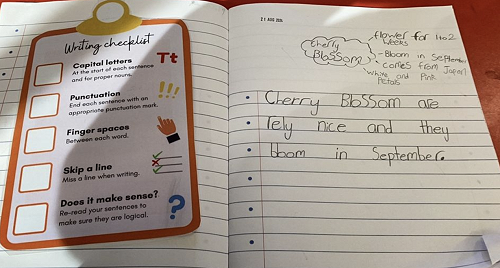 Writing checklist
Capital letters
At the start of each sentence
and for proper nouns.
Tt
Punctuation
End each sentence with an
appropriate punctuation mark.
!!!
Finger spaces
Between each word.
Skip a line
Miss a line when writing.
Does it make sense?
Re-read your sentences to
make sure they are logical.
?
21 AUG 2025
Cherry
BloSSom
flower for 1to2
weeks
- Bloom in September
- comes from Japan!
White and Pink
Petals
Cherry BloSSom are
rely nice and they
bloom in September.